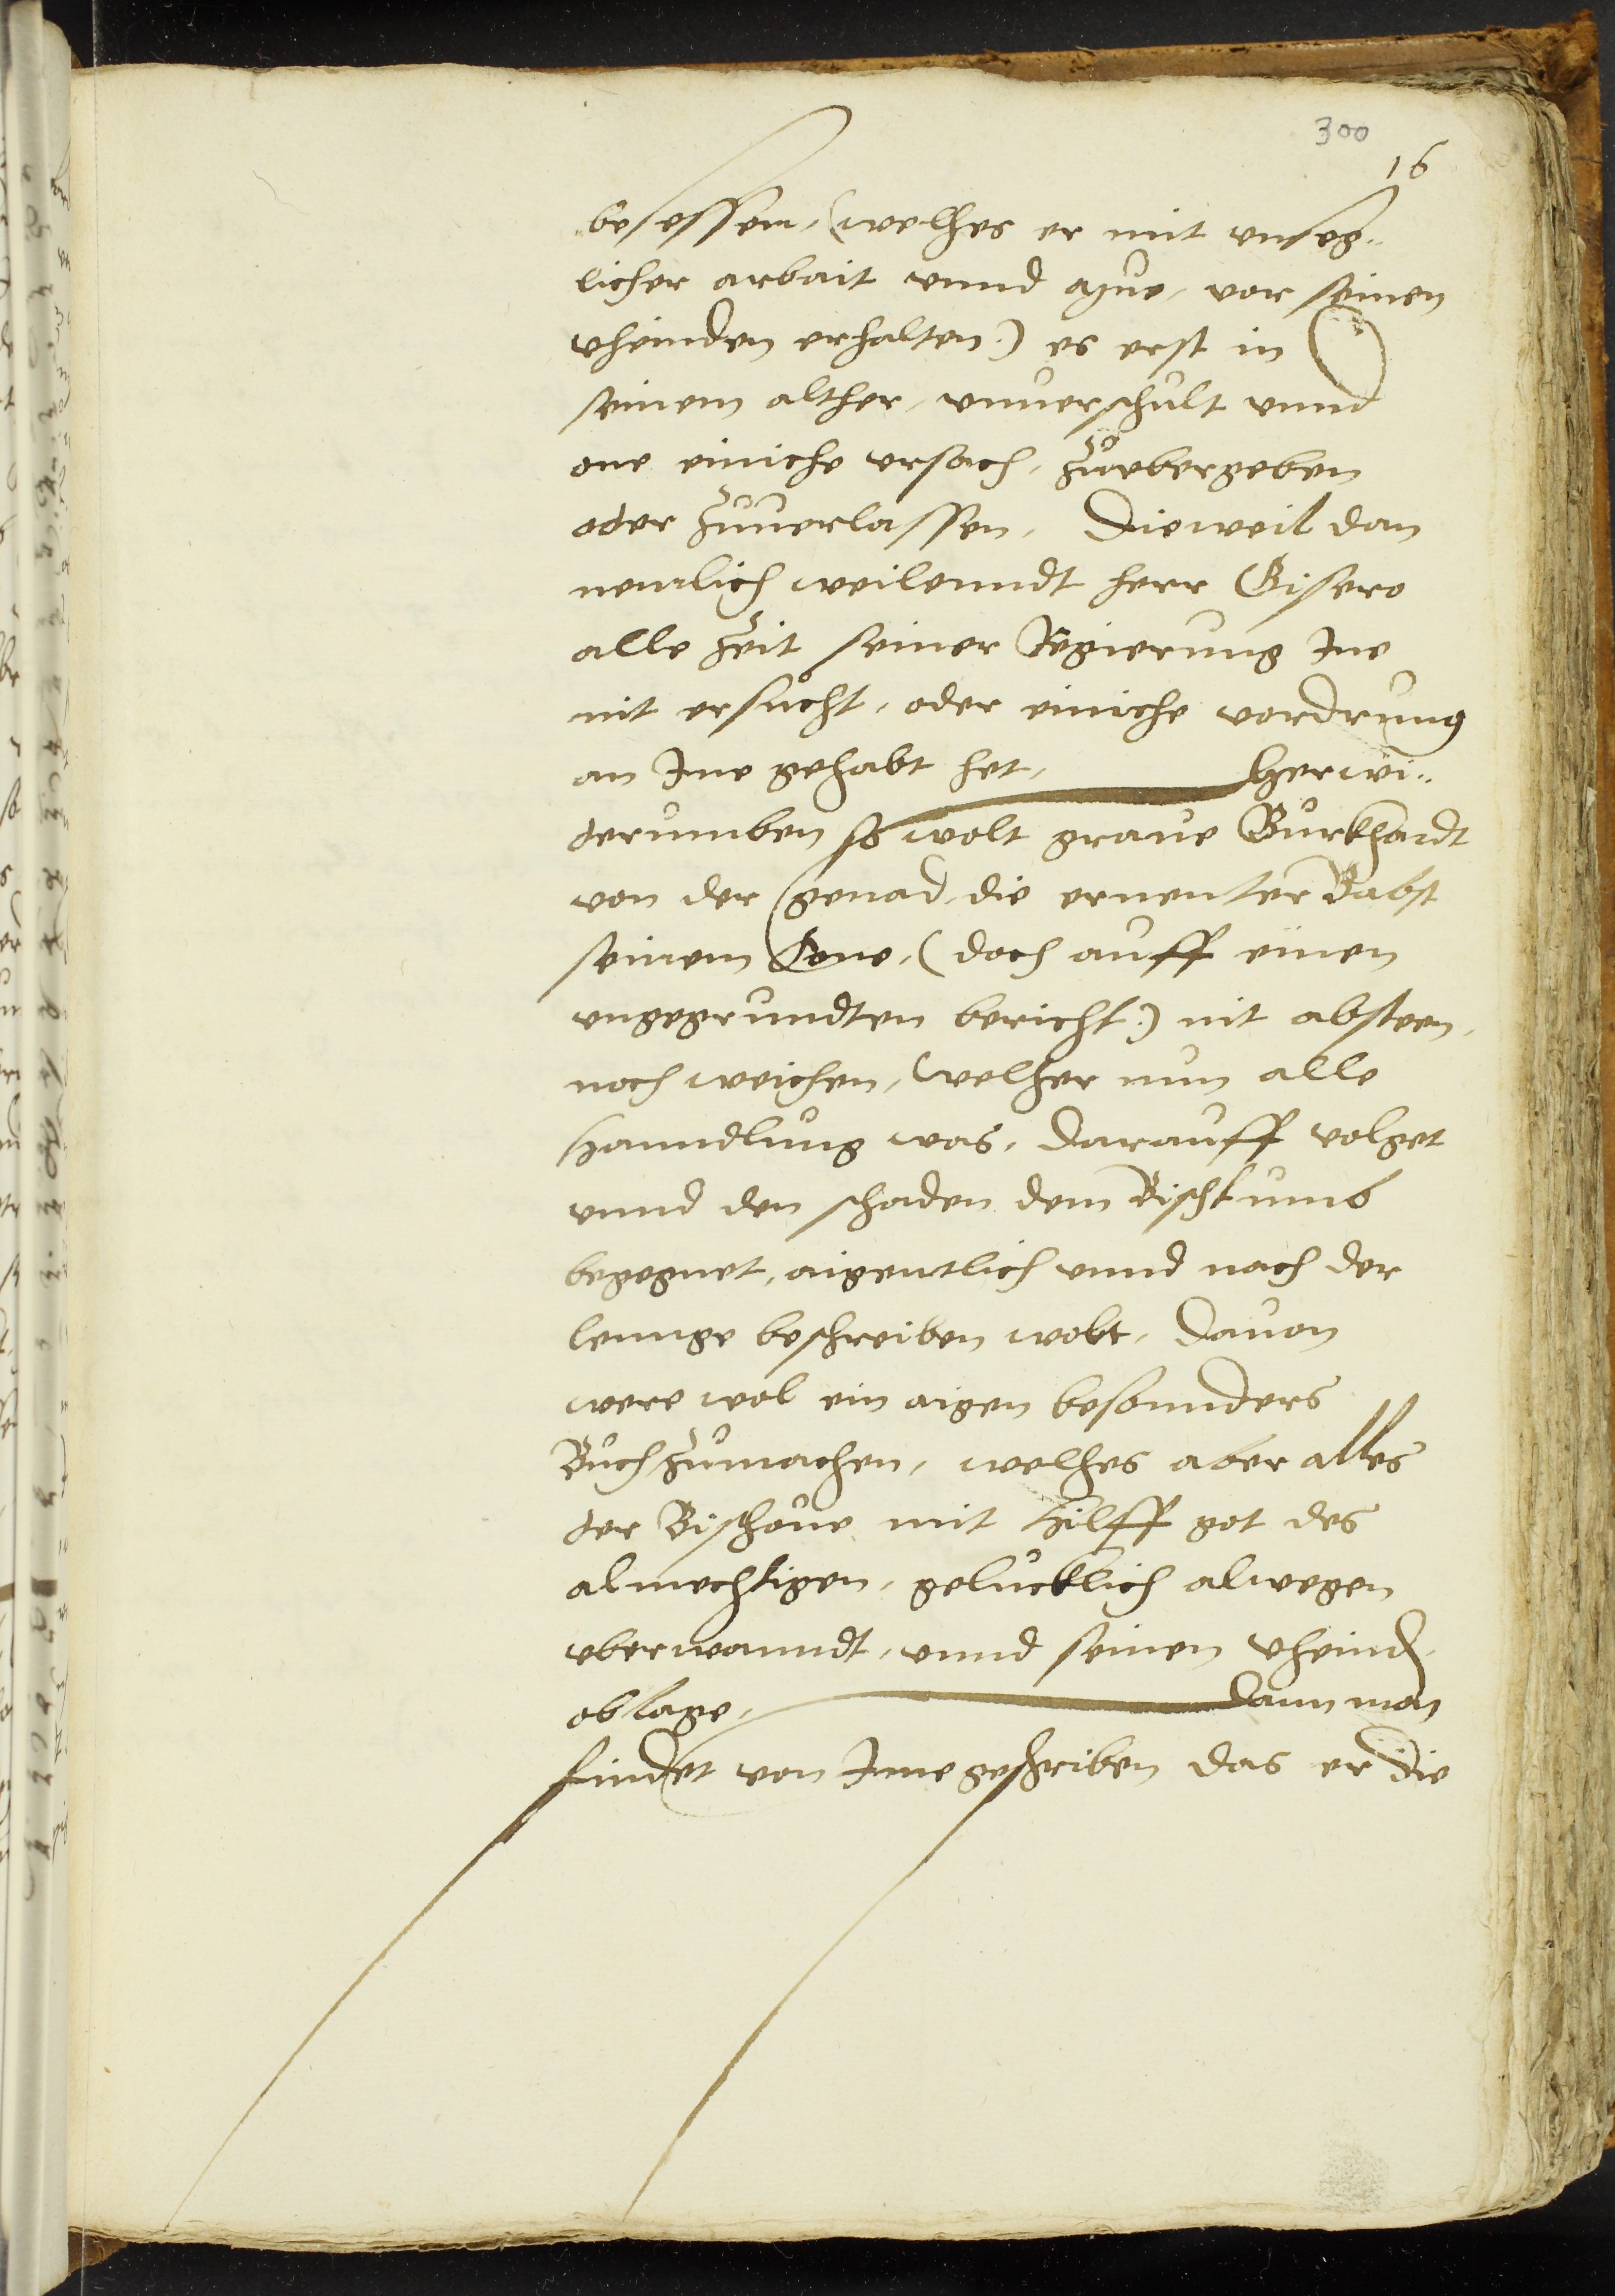 300
16
besessen, (welhes er mit vnseg„
licher arbait vnnd mue, vor seinen
vheinden erhalten:) es erst in
seinem alther, vnuerschult vnnd
one einiche vrsach, zuubergeben
oder zuuerlassen, Dieweil dan
nemlich weilenndt herr Gisero
alle zeit seiner Regierung Ine
nit ersucht, oder einiche vordrung
an Ine gehabt het, Herwi„
derumben so wolt graue Burkhardt
von der genad, die ernenter Babst
seinem Sone, (doch auff einen
vngegrundten bericht:) nit absteen,
noch weichen, Welher nun alle
hanndlung was, darauff volget
vnnd den schaden dem Bischtumb
begegnet, aigentlich vnnd nach der
lennge beschreiben wolt, dauon
were wol ein aigen besonnders
Buch zumachen, welhes aber alles
der Bischoue mit hilff got des
almechtigen, gelucklich alwegen
vberwanndt, vnnd seinen vheind
oblage, Dann man
findet von Ime geschriben das er die